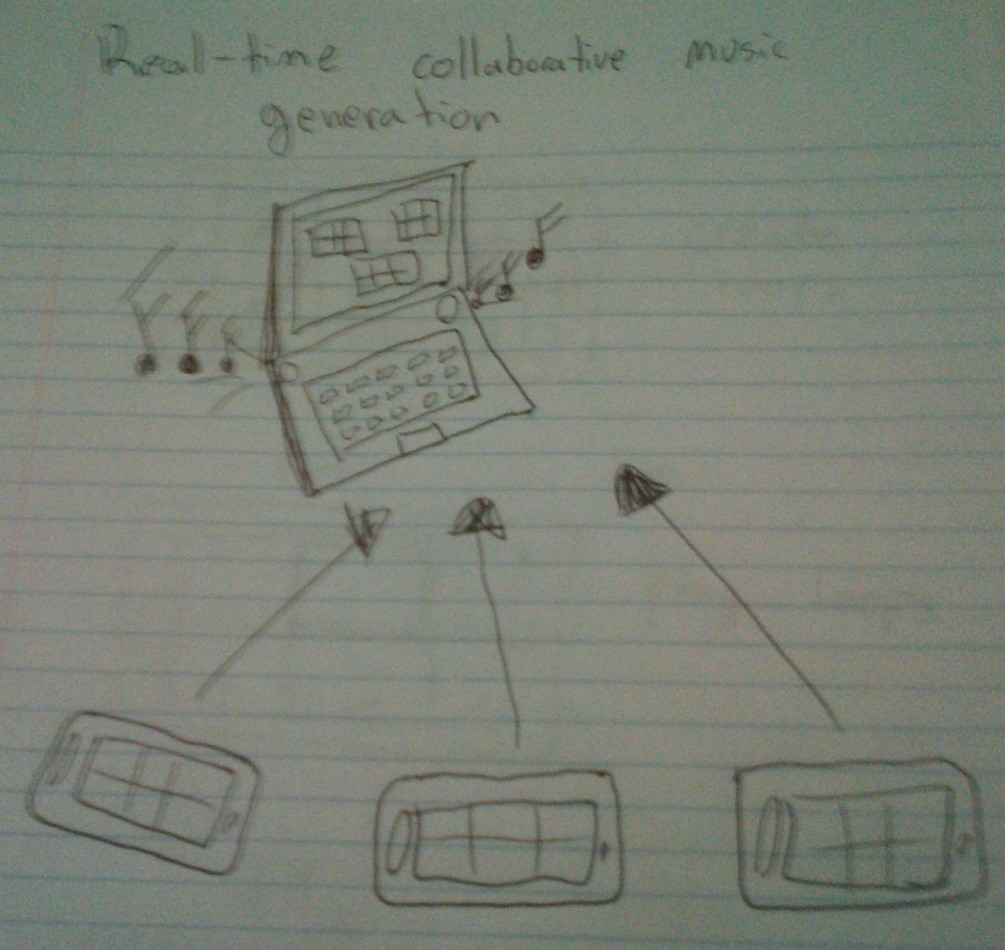 Real-time collaborative music
generation